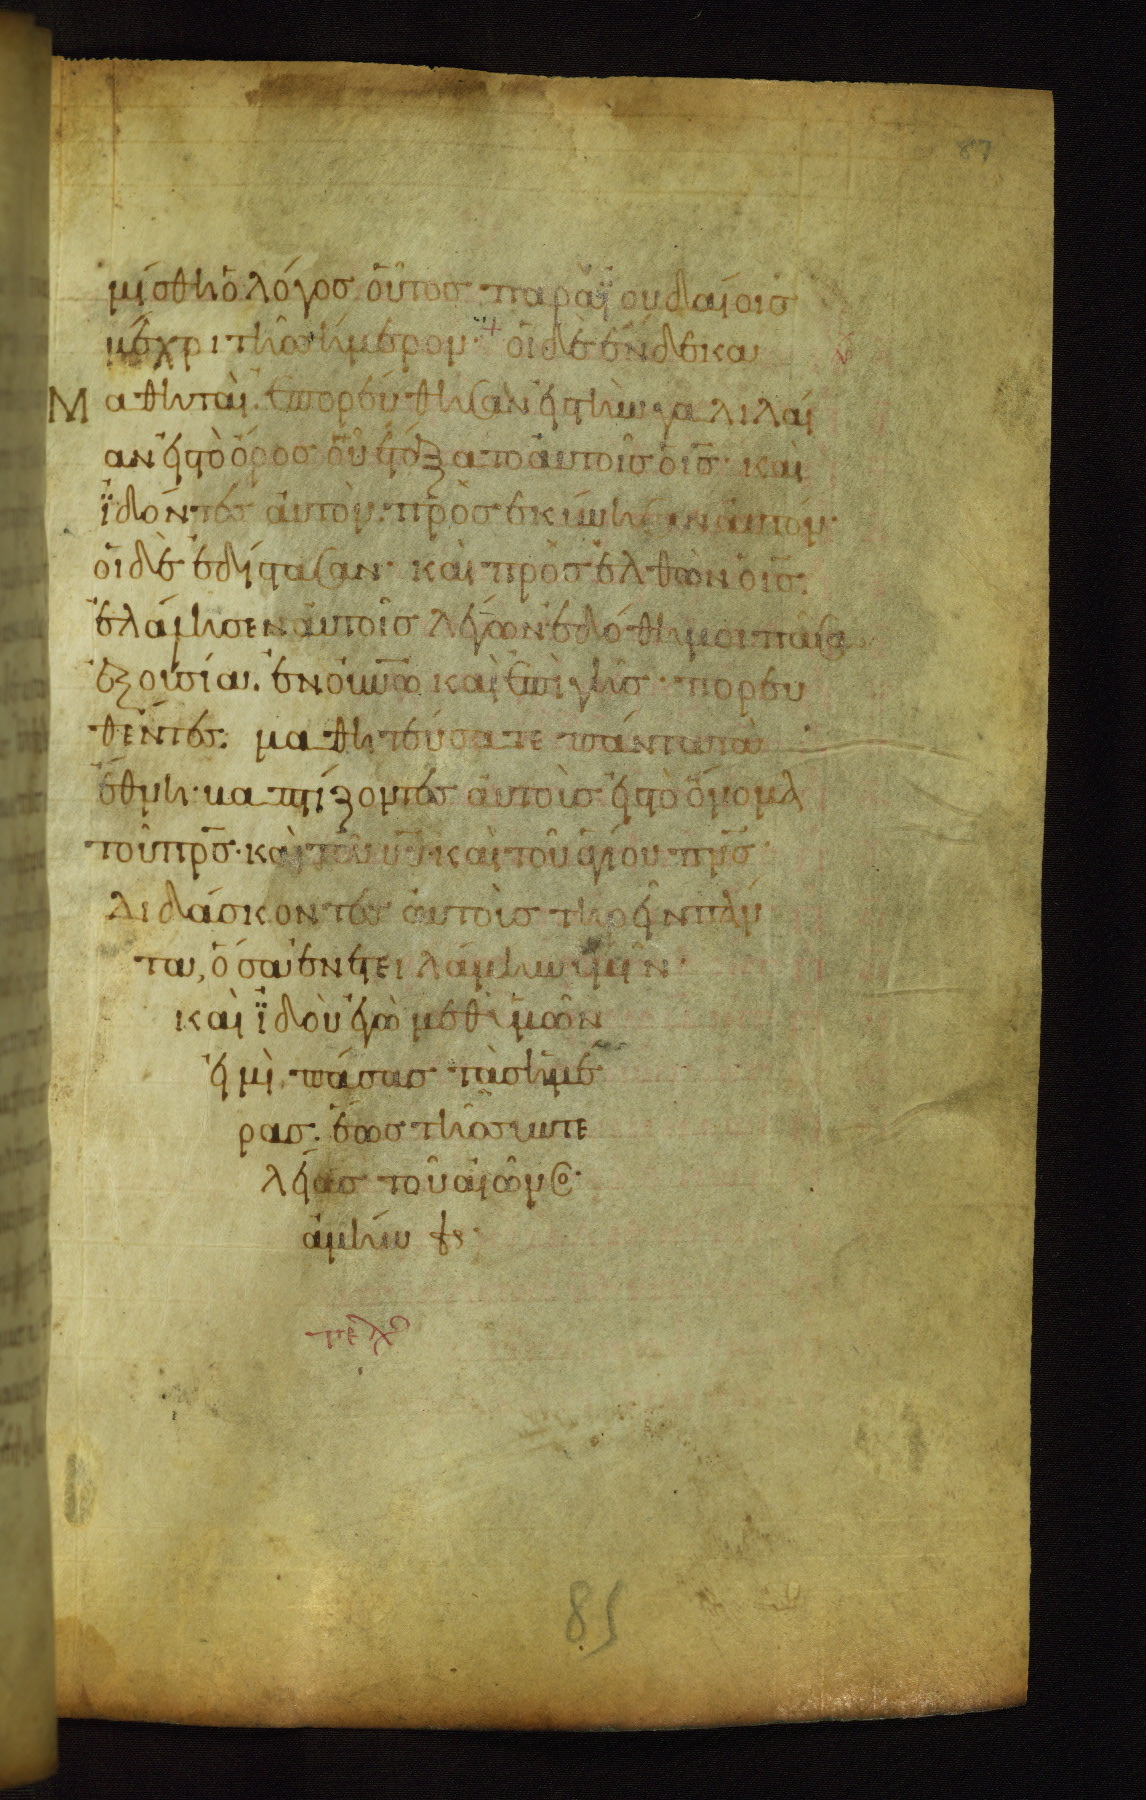 87
μίσθη ὁ λόγος οὗτος παρὰ ϊουδαίοις
μέχρι τῆς σήμερον· + οἱ δὲ ἕνδεκα
Μαθηταὶ ἐπορεύθησαν εἰς τὴν γαλιλαί
αν εἰς τὸ ὄρος οὗ ἐτάξατο αὐτοῖς ὁ ις̅· καὶ
ϊδόντες αὐτὸν. προσεκύνησαν αὐτον·
οἱ δὲ ἐδίστασαν· καὶ προσελθὼν ὁ ις̅.
ἐλάλησεν αὐτοῖς λέγων ἐδόθη μοι πᾶσα
ἐξουσία. ἐν ουνω̅ καὶ ἐπὶ γῆς· πορευ
θέντες. μαθητεύσατε πάντα τὰ
ἔθνη· βαπτίζοντες αὐτοὺς εἰς τὸ ὄνομα
τοῦ πρς̅· καὶ τοῦ υυ̅· καὶ τοῦ ἁγίου πνς̅·
διδάσκοντες αὐτοὺς τηρεῖν πάν
τα, ὅσα ἐνετειλάμην ὑμῖν·
καὶ ϊδοὺ ἐγὼ μεθ' ὑμῶν
εἰμὶ. πάσας τὰς ἡμέ
ρας. ἕως τῆς συντε
λείας τοῦ αἰῶνος·
ἀμήν
τελ
85